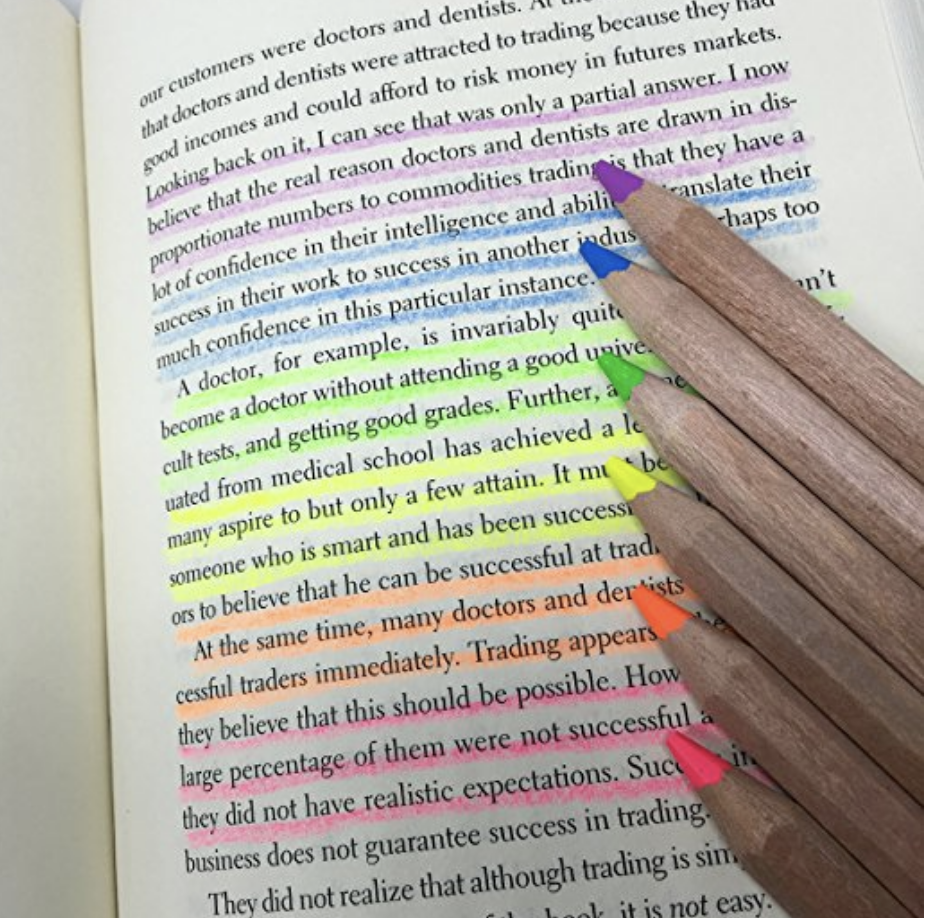 our customers were doctors and dentists. At
that doctors and dentists were attracted to trading because they had
good incomes and could afford to risk money in futures markets.
Looking back on it, I can see that was only a partial answer. I now
believe that the real reason doctors and dentists are drawn in dis-
proportionate numbers to commodities trading is that they have a
lot of confidence in their intelligence and translate their
success in their work to success in another too
much confidence in this particular instance.
A doctor, for example, is invariably
become a doctor without attending a good
cult tests, and getting good grades. Further,
uated from medical school has achieved a
many aspire to but only a few attain. It must be
someone who is smart and has been
ors to believe that he can be successful at
At the same time, many doctors and dentists
cessful traders immediately. Trading appears
they believe that this should be possible.
large percentage of them were not successful
they did not have realistic expectations.
business does not guarantee success in trading.
They did not realize that although trading is
it is not easy.